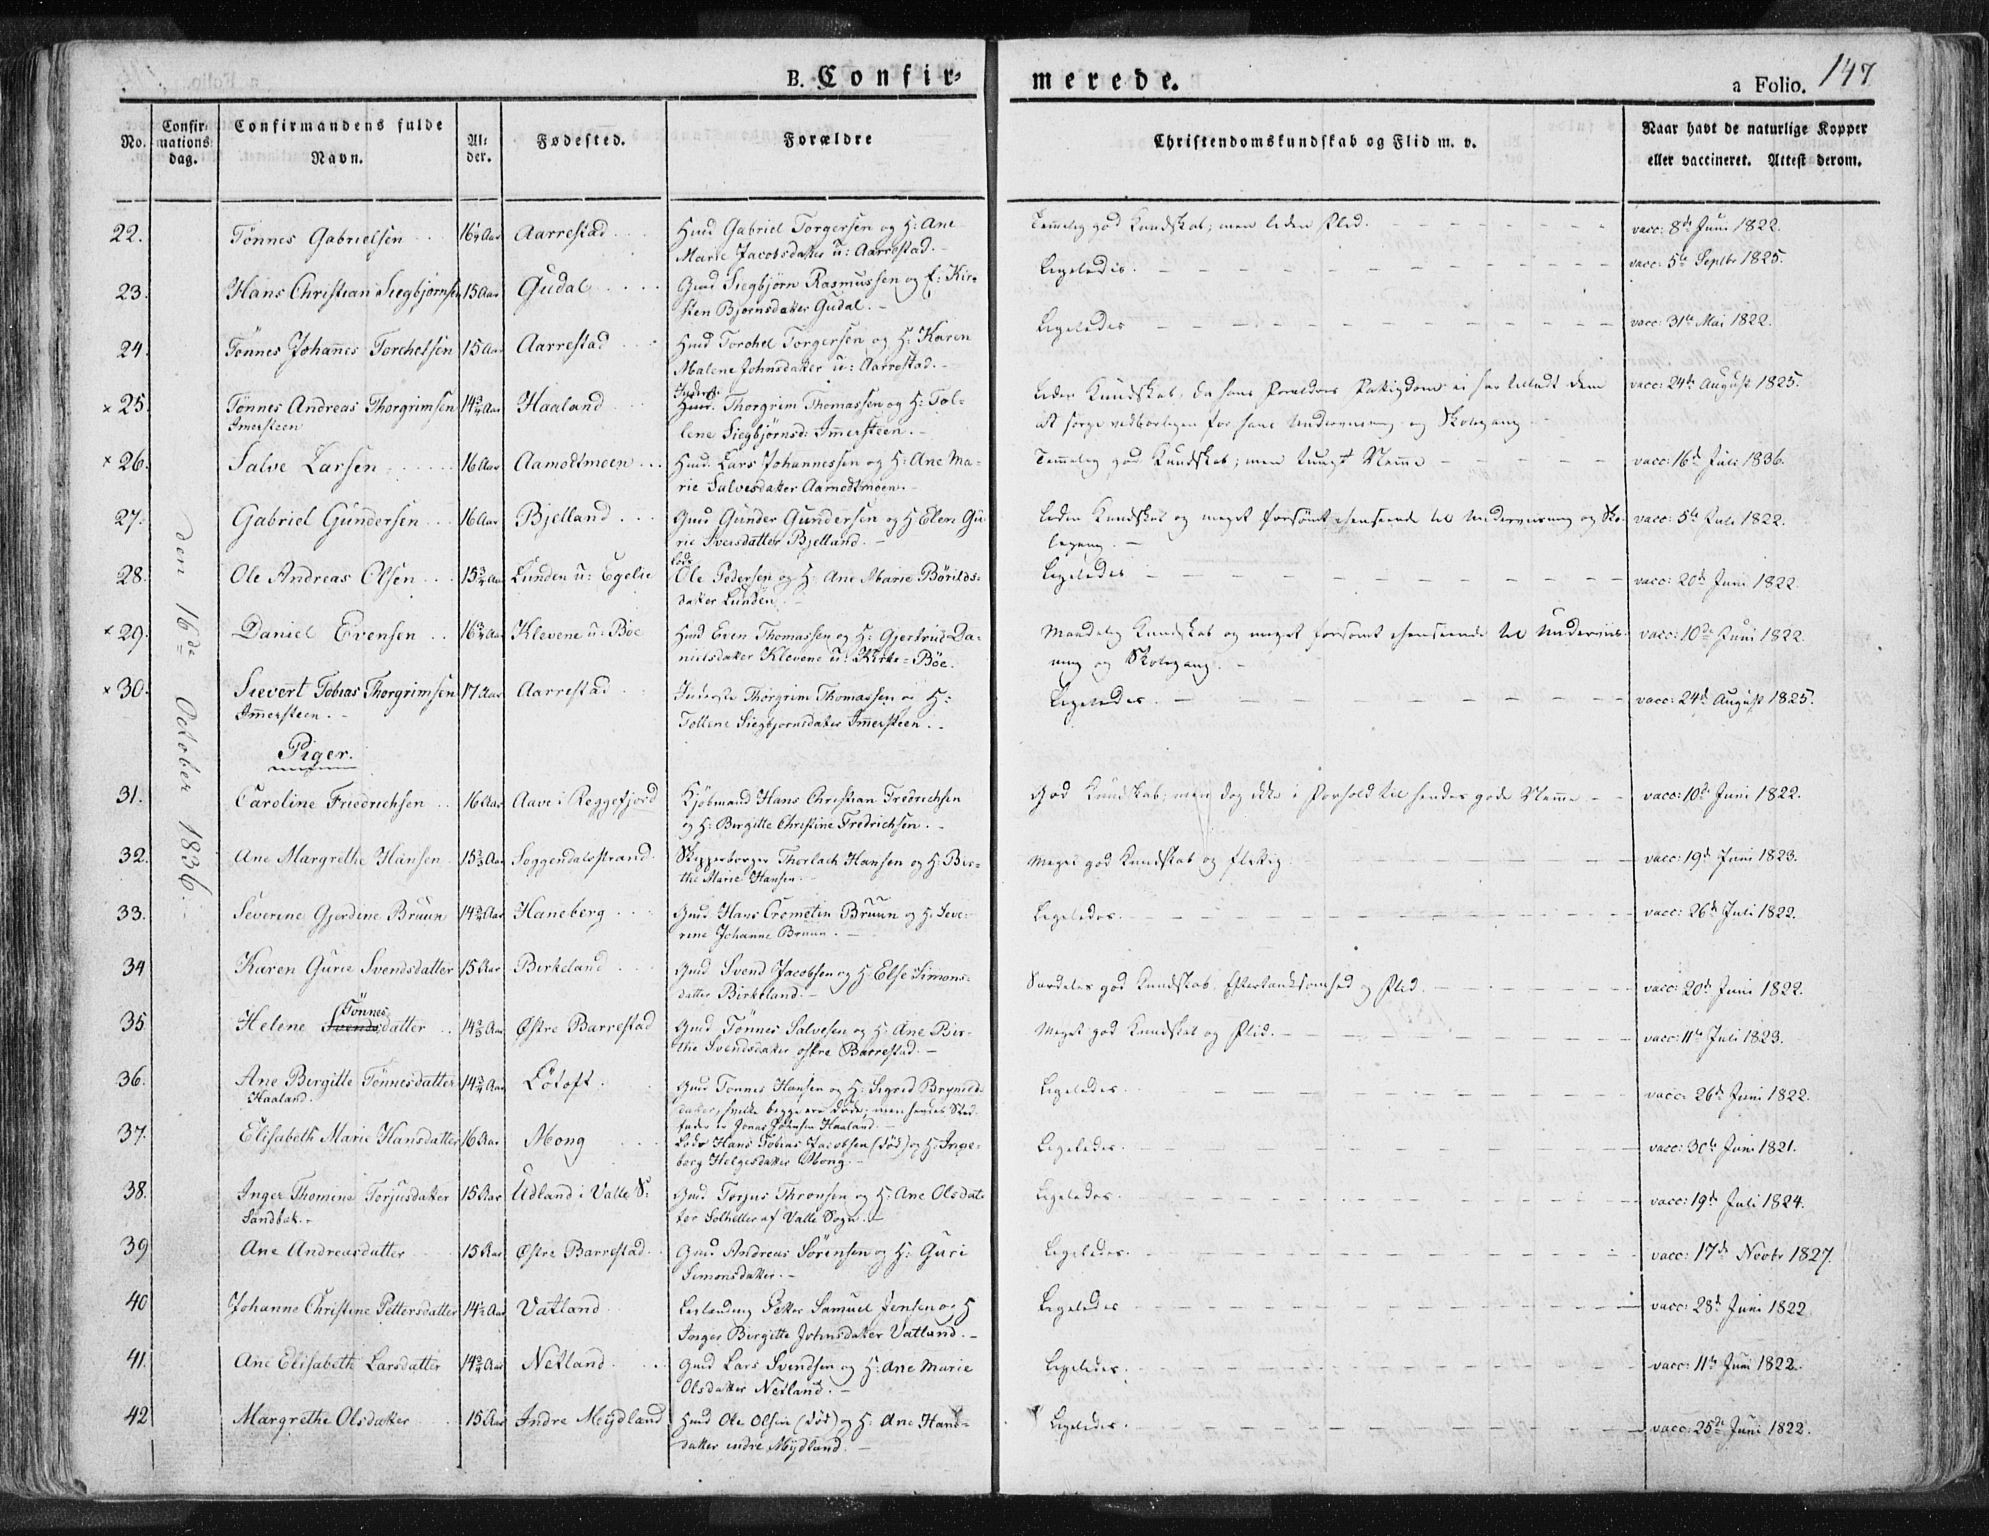 B. Confir-
merede.
a Folio. 147
No.
Confir-
mations
dag.
Confirmandens fulde
Navn.
Al-
der.
Fødested.
Forældre
Christendomskundskab og Flid m. v.
Naar havt de naturlige Kopper
eller vaccineret. Attest derom.
den 16de October 1836.
22. Tönnes Gabrielsen Aarrestad Huusd Gabriel Torgersen og H: Ane Temmelig god Kundskab; men liden Flid. vacc: 8de Juni 1822.
Marie Jacobsdatter u: Aarrestad.
23. Hans Christian Siegbjörnsen 15 Aar Gudal Gmd Siegbjörn Rasmussen og H: Kir- Ligeledes. vacc: 5te Septbr 1825.
sten Bjornsdatter Gudal.
24. Tönnes Johannes Torchelsen 15 Aar Aarrestad Torchel Torgersen og H: Karen Ligeledes vacc: 31te Mai 1822.
Malene Johnsdatter u: Aarrestad.
× 25. Tönnes Andreas Thorgrimsen 14¾ Aar Haaland Thorgrim Thomassen og H: Tol- Liden Kundskab, da hans Forældres Fattigdom ei har tilladt dem vacc: 24de August 1825.
Imersteen lene Siegbjörnsd: Imersteen. at sørge vedbørligen for hans Underviisning og Skolegang
× 26. Salve Larsen 16 Aar Aamodtmoen Lars Johannessen og H: Ane Ma- Temmelig god Kundskab; men tungt Nemme vacc: 16de Juli 1836.
rie Salvesdatter Aamodtmoen.
27. Gabriel Gundersen 16 Aar Bjelland Gmd Gunder Gundersen og H Elen Gu- Liden Kundskab og meget forsömt henseende til Underviisning og Sko- vacc: 5te Juli 1822.
rie Iversdatter Bjelland. legang.
28. Ole Andreas Olsen 15¾ Aar Lunden u: Egelie Ole Pedersen og H: Ane Marie Börilds- Ligeledes vacc: 20de Juni 1822
datter Lunden.
× 29. Daniel Evensen 16¾ Aar Klevene u: Böe Even Thomassen og H: Gjertrud Da- Maadelig Kundskab og meget forsömt henseende til Underviis- vacc: 10de Juni 1822.
nielsdatter Klevene u: Kirke-Böe. ning og Skolegang.
× 30. Sievert Tobias Thorgrimsen 17 Aar Aarrestad Inderste Thorgrim Thomassen og H: Ligeledes. vacc: 24de August 1825.
Imersteen. Tollene Siegbjornsdatter Imersteen.
Piger.
31. Caroline Friedrichsen 16 Aar Aave i Reggefjord Kjöbmand Hans Christian Fredrichsen God Kundskab; men dog ikke i Forhold til hendes gode Nemme vacc: 10de Juni 1822.
og H: Birgitte Christine Fredrichsen.
32. Ane Margrethe Hansen Soggendalsstrand Skipperborger Thorlach Hansen og H: Bir- Meget god Kundskab og flittig vacc: 19de Juni 1823.
the Marie Hansen.
33. Severine Gjordine Bruun 14¾ Aar Haneberg Gmd Hans Crometin Bruun og H: Seve- Ligeledes. vacc: 26de Juli 1822.
rine Johanne Bruun.
34 Karen Gurie Svendsdatter 15 Aar Birkeland Gmd Svend Jacobsen og H: Else Simons- Særdeles god Kundskab, Eftertænksomhed og Flid. vacc: 20de Juni 1822.
datter Birkeland.
35 Helene Tönnesdatter Østre Barrestad Gmd Tönnes Salvesen og H: Ane Bir- Meget god Kundskab og Flid. vacc: 11te Juli 1823.
the Svendsdatter østre Barrestad.
36. Ane Birgitte Tönnesdatter 14¾ Aar Lötoft Gmd Tonnes Hansen og H: Sigrid Bryntilds- Ligeledes vacc: 26de Juni 1822.
Haaland. datter, hvilke begge ere døde; men hendes Sted-
fader er Jonas Johnsen Haaland.
37. Elisabeth Marie Hansdatter 16 Aar Mong Hans Tobias Jacobsen (død) og H: Inge- Ligeledes. vacc: 30te Juni 1821.
borg Helgesdatter Mong.
38. Inger Thomine Torjusdatter 15 Aar Udland i Valle S: Gmd Torjus Thronsen og H: Ane Olsdat- Ligeledes. vacc: 19de Juli 1824.
Sandbek. ter Solheller af Valle Sogn.
39 Ane Andreasdatter 15 Aar Østre Barrestad Gmd Andreas Sörensen og H: Guri Ligeledes. vacc: 17de Novbr 1827.
Simonsdatter.
40 Johanne Christine Pettersdatter Vatland Petter Samuel Jensen og H Ligeledes vacc: 28de Juni 1822
Inger Birgitte Johnsdatter Vatland.
41. Ane Elisabeth Larsdatter 14¾ Aar Netland Gmd Lars Svendsen og H: Ane Marie Ligeledes. vacc: 11te Juni 1822.
Olsdatter Netland.
42 Margrethe Olsdatter 15 Aar Indre Mydland Ole Olsen (død) og H: Ane Hans- Ligeledes. vacc: 25de Juni 1822.
datter indre Mydland.